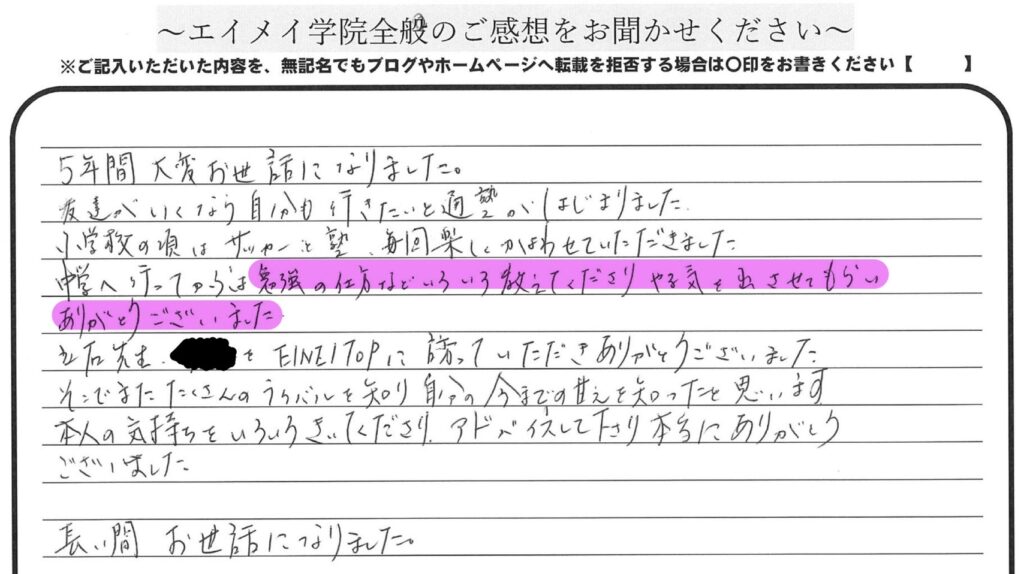 ～エイメイ学院全般のご感想をお聞かせください～
※ご記入いただいた内容を、無記名でもブログやホームページへ転載を拒否する場合は〇印をお書きください【　　】
5年間 大変お世話になりました。
友達がいくなら自分も行きたいと通塾がはじまりました
小学校の頃はサッカーと塾、毎回楽しくかよわせていただきました
中学へ行ってからは勉強の仕方などいろいろ教えてくださりやる気を出させてもらい
ありがとうございました
立石先生、 を EIMEITOPに誘っていただきありがとうございました
そこでまたたくさんのライバルを知り自分の今までの甘えを知ったと思います
本人の気持ちをいろいろきいてくださり、アドバイスして下さり本当にありがとう
ございました
長い間 お世話になりました。